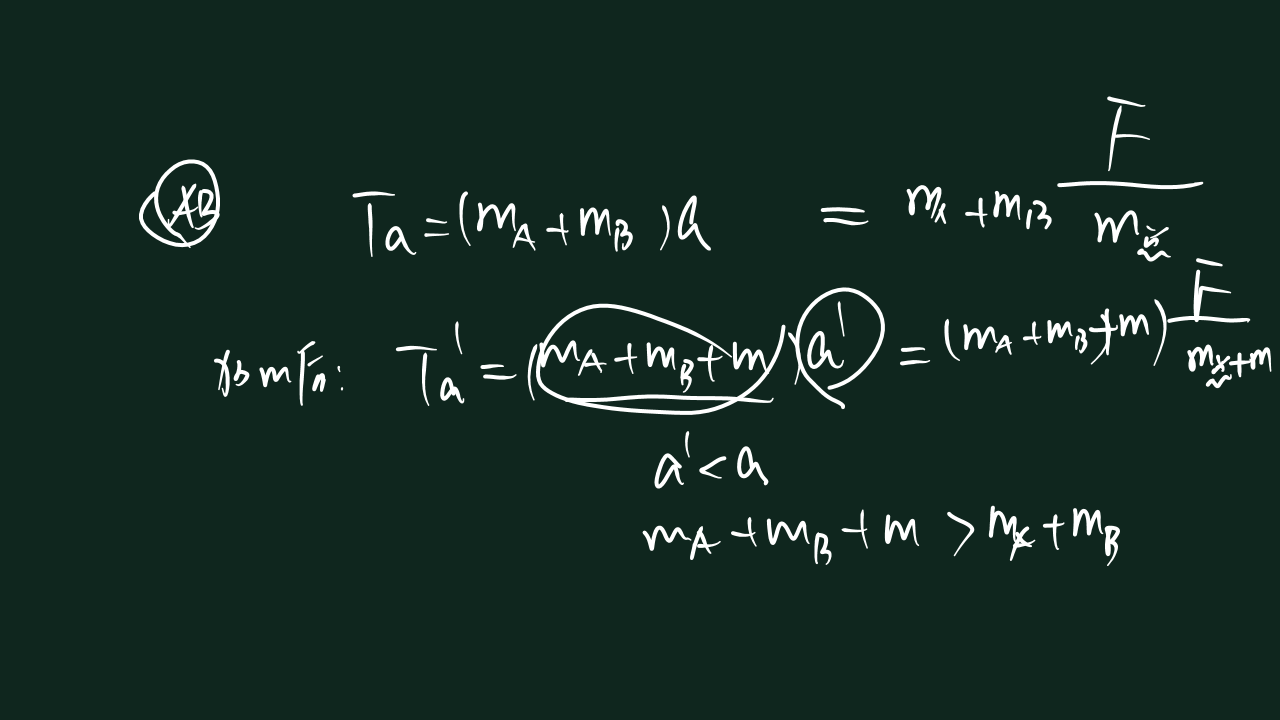 AB Tₐ=(m_A+m_B)a = m_A+m_B F/m总
加m后: Tₐ'=(m_A+m_B+m)a' = (m_A+m_B+m) F/(m总+m)
a'<a
m_A+m_B+m > m_A+m_B